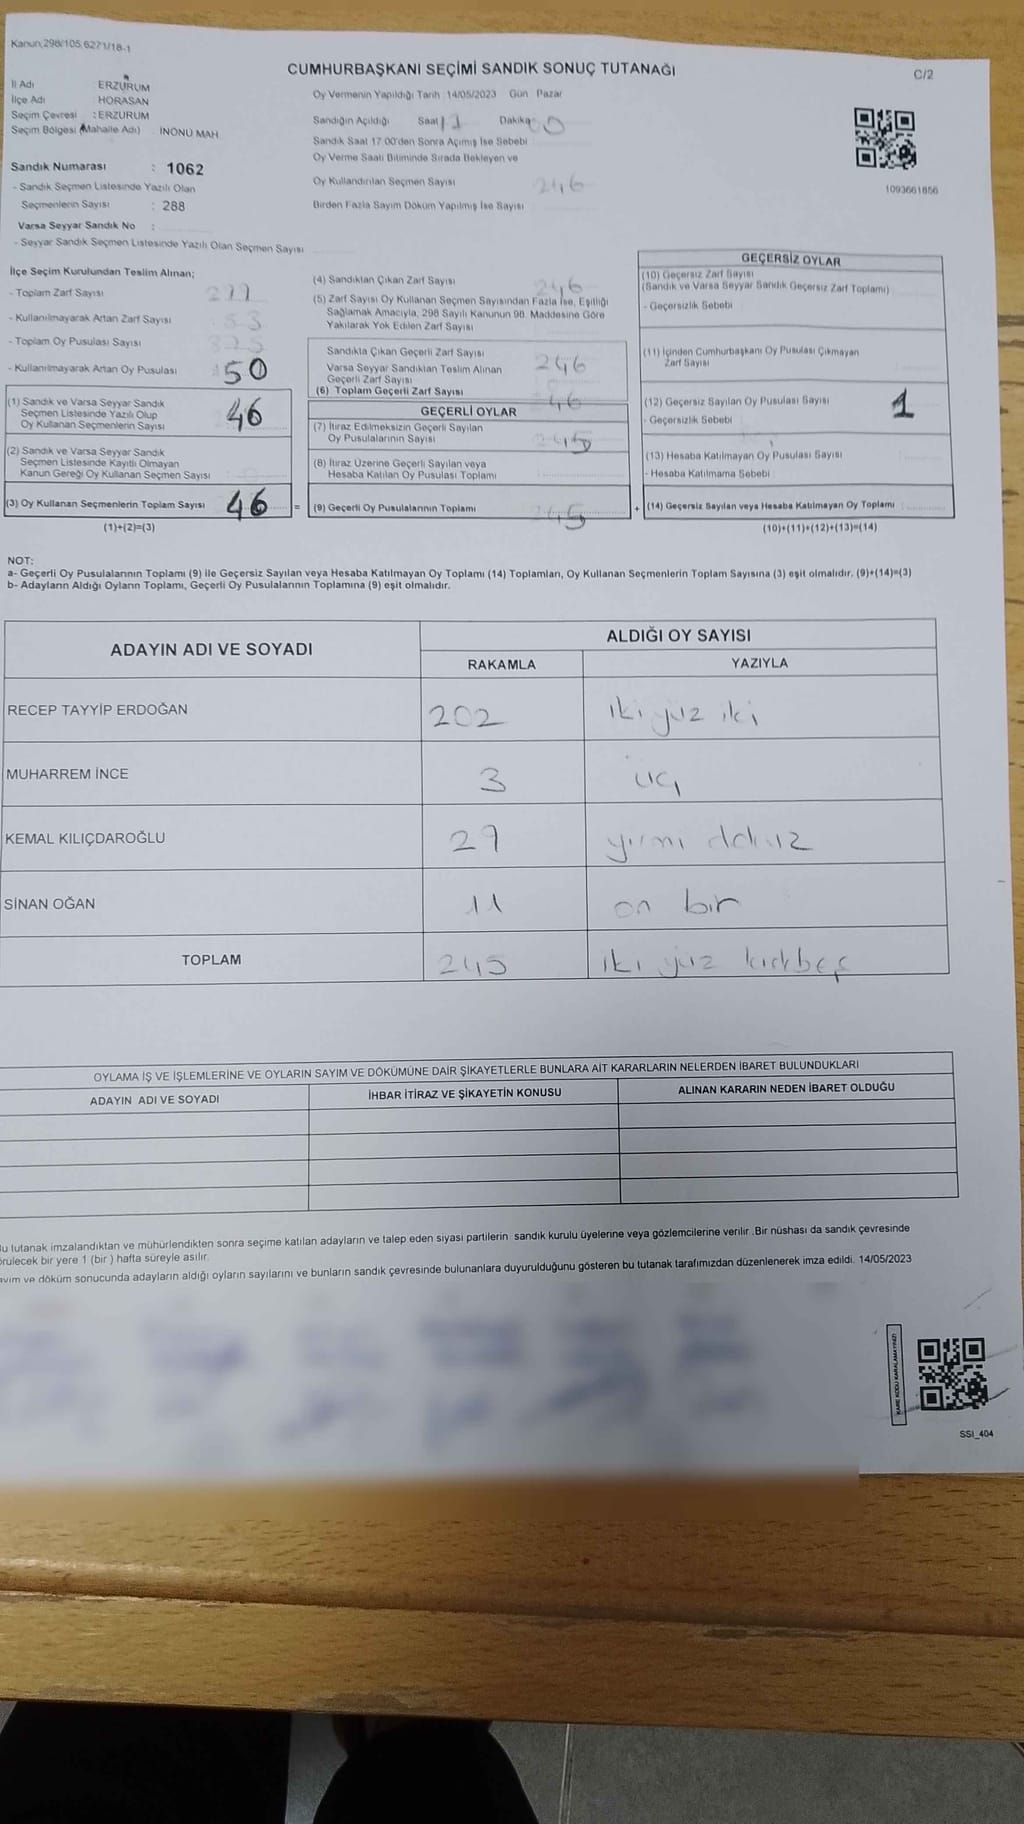 Kanun;298/105,6271/18-1
CUMHURBAŞKANI SEÇİMİ SANDIK SONUÇ TUTANAĞI
C/2
İl Adı : ERZURUM
İlçe Adı : HORASAN
Seçim Çevresi : ERZURUM
Seçim Bölgesi (Mahalle Adı) İNÖNÜ MAH.
Sandık Numarası : 1062
- Sandık Seçmen Listesinde Yazılı Olan
Seçmenlerin Sayısı : 288
Varsa Seyyar Sandık No :
- Seyyar Sandık Seçmen Listesinde Yazılı Olan Seçmen Sayısı
Oy Vermenin Yapıldığı Tarih :14/05/2023 Gün Pazar
Sandığın Açıldığı Saat Dakika
Sandık Saat 17:00'den Sonra Açımış İse Sebebi
Oy Verme Saati Bitiminde Sırada Bekleyen ve
Oy Kullandırılan Seçmen Sayısı 246
Birden Fazla Sayım Döküm Yapılmış İse Sayısı
1093661856
İlçe Seçim Kurulundan Teslim Alınan;
- Toplam Zarf Sayısı 299
- Kullanılmayarak Artan Zarf Sayısı 53
- Toplam Oy Pusulası Sayısı
- Kullanılmayarak Artan Oy Pusulası 50
(1) Sandık ve Varsa Seyyar Sandık
Seçmen Listesinde Yazılı Olup
Oy Kullanan Seçmenlerin Sayısı 46
(2) Sandık ve Varsa Seyyar Sandık
Seçmen Listesinde Kayıtlı Olmayan
Kanun Gereği Oy Kullanan Seçmen Sayısı
(3) Oy Kullanan Seçmenlerin Toplam Sayısı 46 =
(1)+(2)=(3)
(4) Sandıktan Çıkan Zarf Sayısı 246
(5) Zarf Sayısı Oy Kullanan Seçmen Sayısından Fazla İse, Eşitliği
Sağlamak Amacıyla, 298 Sayılı Kanunun 98. Maddesine Göre
Yakılarak Yok Edilen Zarf Sayısı
Sandıkta Çıkan Geçerli Zarf Sayısı 246
Varsa Seyyar Sandıktan Teslim Alınan
Geçerli Zarf Sayısı
(6) Toplam Geçerli Zarf Sayısı 46
GEÇERLİ OYLAR
(7) İtiraz Edilmeksizin Geçerli Sayılan
Oy Pusulalarının Sayısı 245
(8) İtiraz Üzerine Geçerli Sayılan veya
Hesaba Katılan Oy Pusulası Toplamı
(9) Geçerli Oy Pusulalarının Toplamı 245 +
GEÇERSİZ OYLAR
(10) Geçersiz Zarf Sayısı
(Sandık ve Varsa Seyyar Sandık Geçersiz Zarf Toplamı)
- Geçersizlik Sebebi
(11) İçinden Cumhurbaşkanı Oy Pusulası Çıkmayan
Zarf Sayısı
(12) Geçersiz Sayılan Oy Pusulası Sayısı 1
- Geçersizlik Sebebi
(13) Hesaba Katılmayan Oy Pusulası Sayısı
- Hesaba Katılmama Sebebi
(14) Geçersiz Sayılan veya Hesaba Katılmayan Oy Toplamı
(10)+(11)+(12)+(13)=(14)
NOT:
a- Geçerli Oy Pusulalarının Toplamı (9) ile Geçersiz Sayılan veya Hesaba Katılmayan Oy Toplamı (14) Toplamları, Oy Kullanan Seçmenlerin Toplam Sayısına (3) eşit olmalıdır. (9)+(14)=(3)
b- Adayların Aldığı Oyların Toplamı, Geçerli Oy Pusulalarının Toplamına (9) eşit olmalıdır.
ADAYIN ADI VE SOYADI ALDIĞI OY SAYISI
RAKAMLA YAZIYLA
RECEP TAYYİP ERDOĞAN 202 iki yüz iki
MUHARREM İNCE 3 üç
KEMAL KILIÇDAROĞLU 29 yirmi dokuz
SİNAN OĞAN 11 on bir
TOPLAM 245 iki yüz kırkbeş
OYLAMA İŞ VE İŞLEMLERİNE VE OYLARIN SAYIM VE DÖKÜMÜNE DAİR ŞİKAYETLERLE BUNLARA AİT KARARLARIN NELERDEN İBARET BULUNDUKLARI
ADAYIN ADI VE SOYADI İHBAR İTİRAZ VE ŞİKAYETİN KONUSU ALINAN KARARIN NEDEN İBARET OLDUĞU
Bu tutanak imzalandıktan ve mühürlendikten sonra seçime katılan adayların ve talep eden siyasi partilerin sandık kurulu üyelerine veya gözlemcilerine verilir .Bir nüshası da sandık çevresinde
örülecek bir yere 1 (bir ) hafta süreyle asılır.
ayım ve döküm sonucunda adayların aldığı oyların sayılarını ve bunların sandık çevresinde bulunanlara duyurulduğunu gösteren bu tutanak tarafımızdan düzenlenerek imza edildi. 14/05/2023
KARE KODU KARALAMAYINIZ!
SSI_404